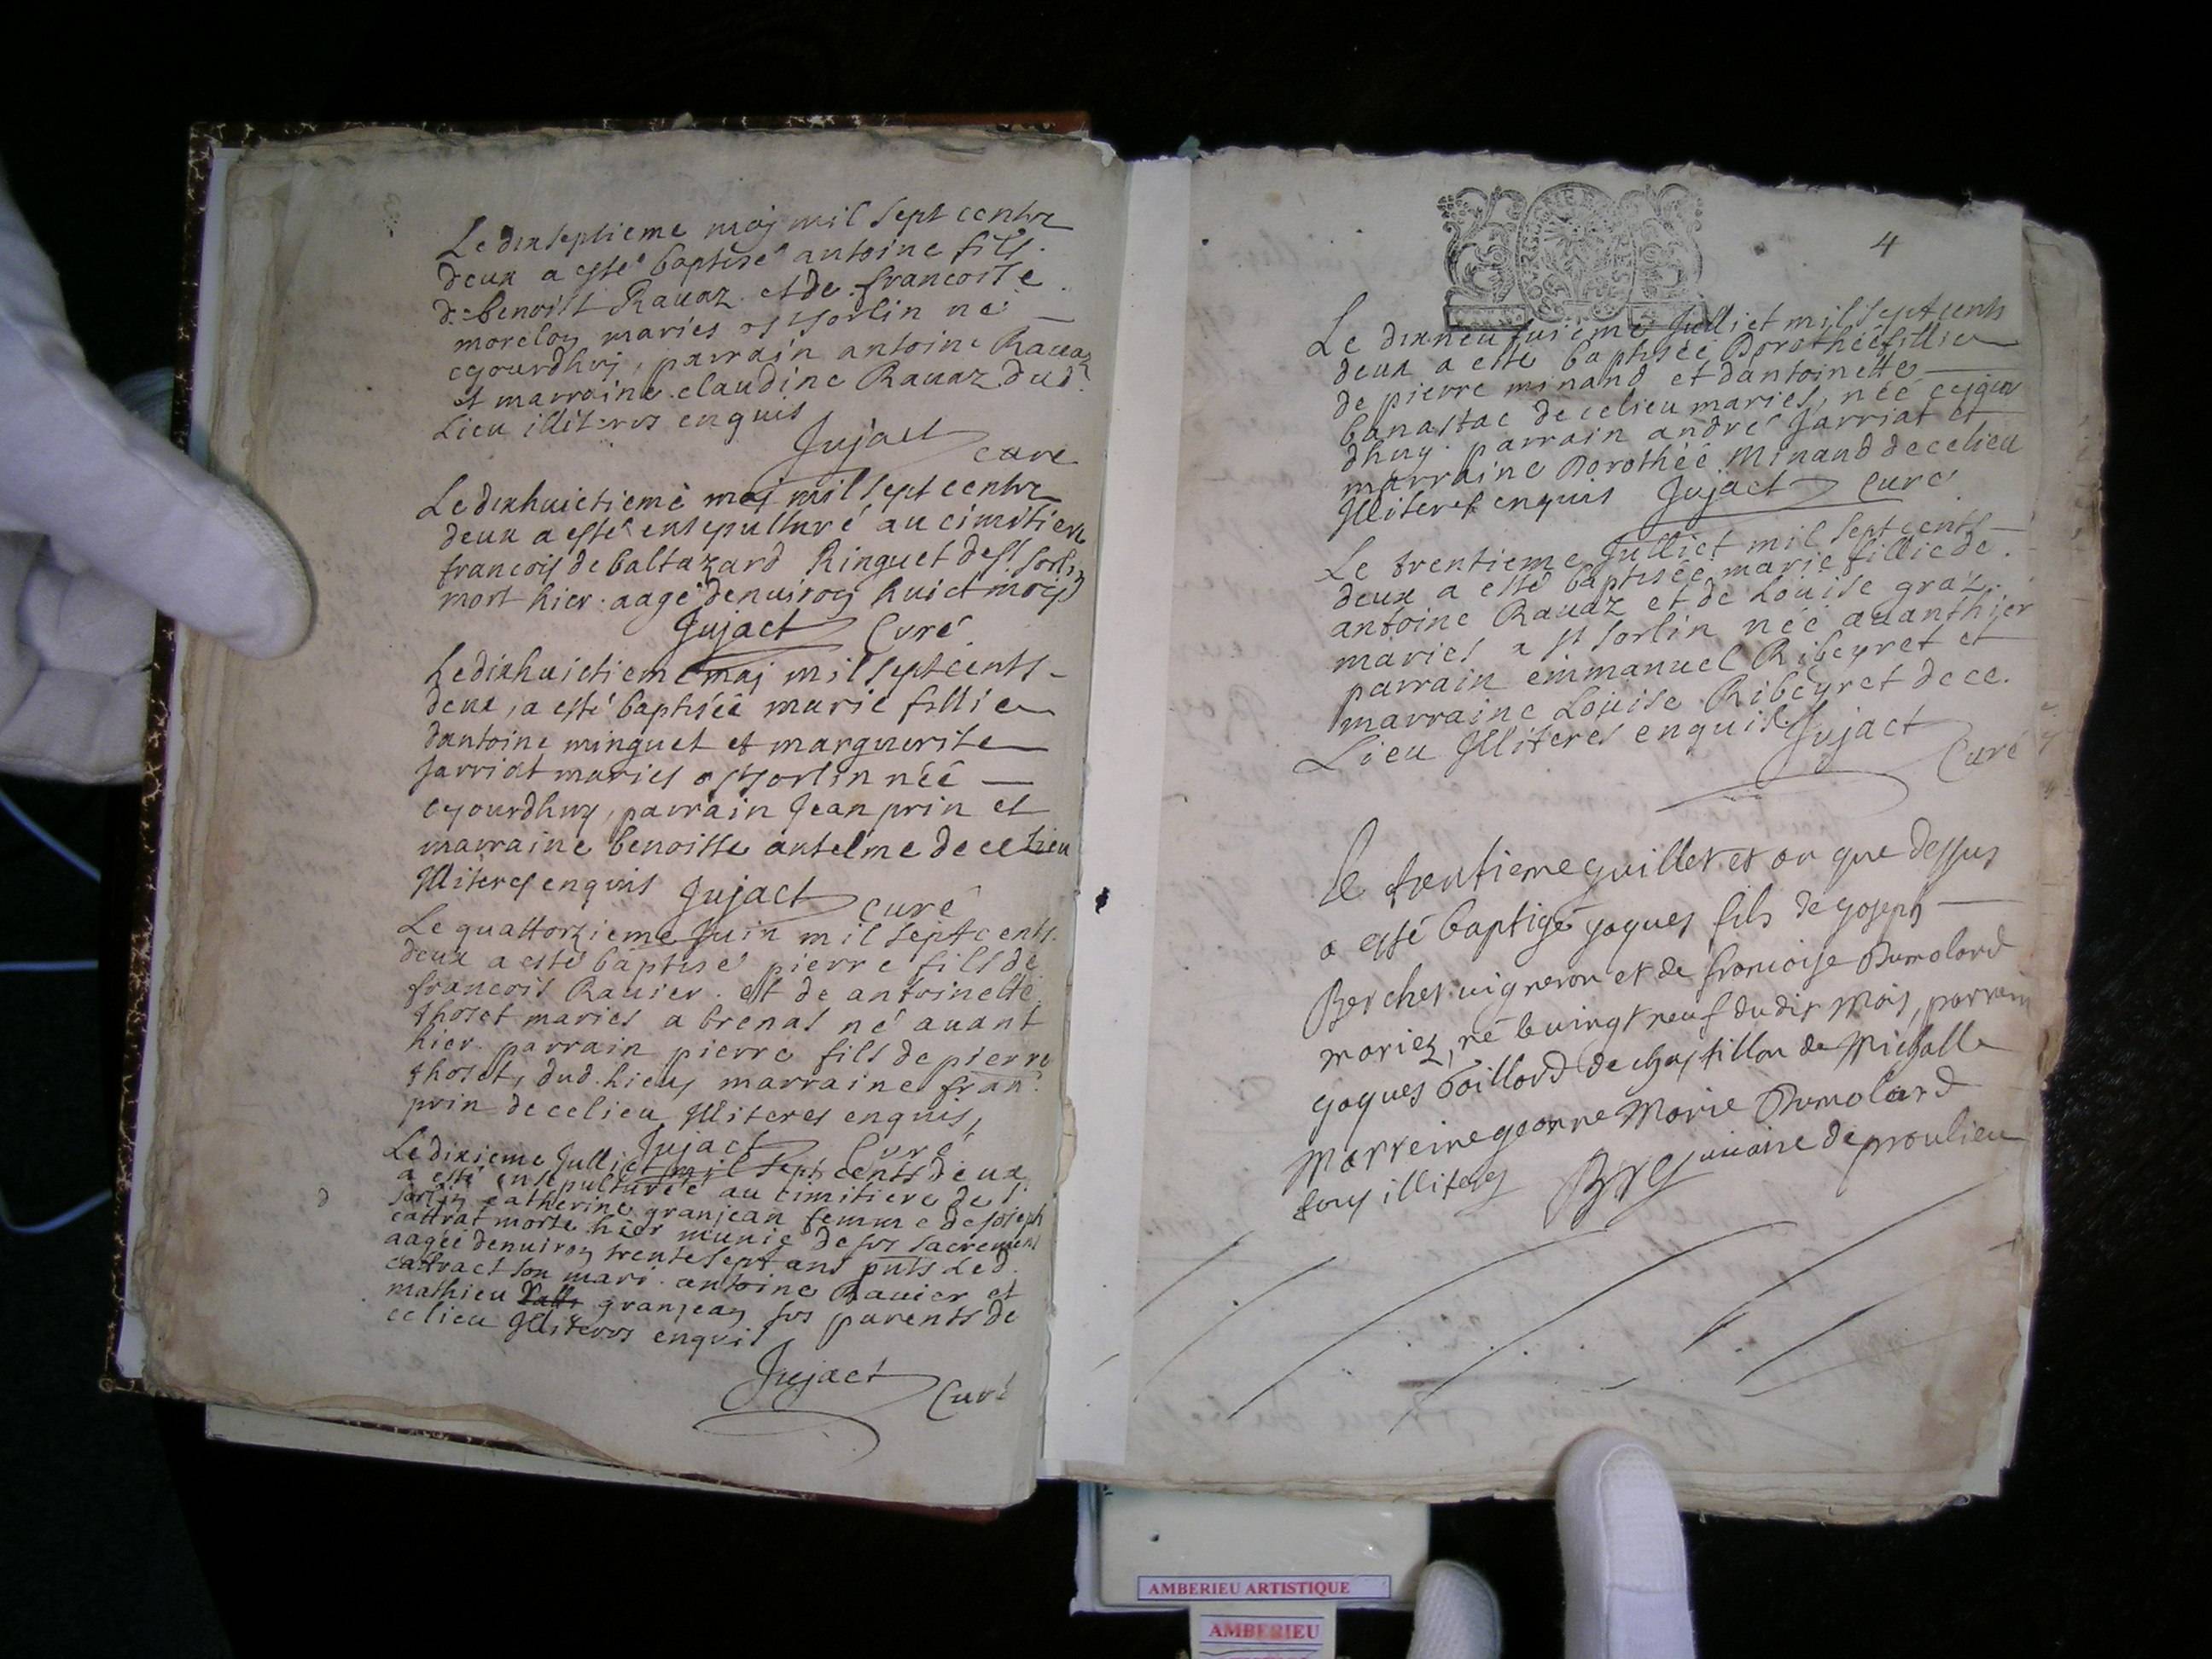 Le dixseptieme maj mil sept cents
deux a esté baptisé antoine fils
de benoist Rauaz et de francoise
morelon mariés a st sorlin né
cejourdhuj, parrain antoine Rauaz
et marraine claudine Rauaz dud.
Lieu illiteres enquis
Jujact curé
Le dixhuictieme maj mil sept cents
deux a esté ensepulturé au cimitiere
francois de baltazard Ringuet de st sorlin
mort hier aagé denuiron huict mois
Jujact Curé
Le dixhuictieme maj mil sept cents
deux, a esté baptisée marie fillie
dantoine minguet et marguerite
Jarriat mariés a st sorlin néé
cejourdhuy, parrain Jean prin et
marraine benoiste antelme de ce Lieu
Illiteres enquis Jujact curé
Le quattorzieme Juin mil sept cents
deux a esté baptisé pierre fils de
francois Rauier et de antoinette
thoset mariés a brenas né auant
hier parrain pierre fils de pierre
thoset, dud. Lieu, marraine fran.
prin de ce lieu Illiteres enquis,
Jujact Curé
Le dixieme Julliet mil sept cents deux
a esté ensepulturéé au cimitiere de st
sorlin catherine granjean femme de Joseph
cattrat morte hier munie de ses sacrements
aagéé denuiron trente sept ans pnts Led.
cattract son mari antoine Rauier et
mathieu granjean ses parents de
ce lieu Illiteres enquis
Jujact Curé
4
Le dixneufuieme Julliet mil sept cents
deux a esté baptisée Dorothéé fillie
de pierre minand et dantoinette
banastac de ce lieu mariés, néé cejour
dhuy parrain andré Jarriat et
marraine Dorothéé Minand de ce lieu
Illiteres enquis Jujact Curé
Le trentieme Julliet mil sept cents
deux a esté baptisée marie fillie de
antoine Rauaz et de Louise graz
mariés a st sorlin néé auanthier
parrain emmanuel Ribeyret et
marraine Louise Ribeyret de ce
Lieu Illiteres enquis Jujact
Curé
le trentieme guillet et an que dessus
a esté baptigé jaques fils de goseph
Berchet uigneron et de francoise Dumolard
mariez, né le uingt neuf dudit mois, parrein
jaques Goillard de chastillon de Michalle
Marreine geanne Marie Dumolard
tous illiteres uicaire de proulieu
AMBERIEU ARTISTIQUE
AMBERIEU